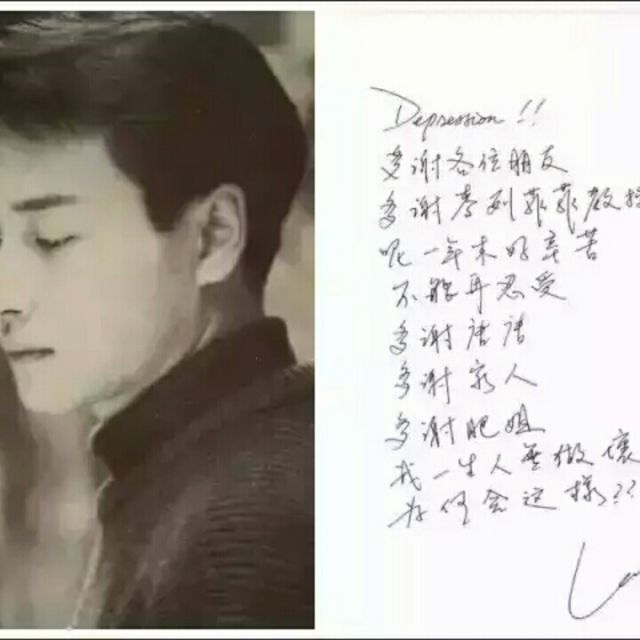 Depression!!
多谢各位朋友
多谢李列菲菲教授
呢一年来好辛苦
不能再忍受
多谢唐唐
多谢家人
多谢肥姐
我一生人无做坏
为何会这样??